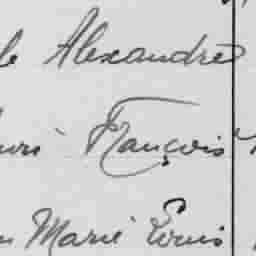 Alexandre
François
Marie Louis